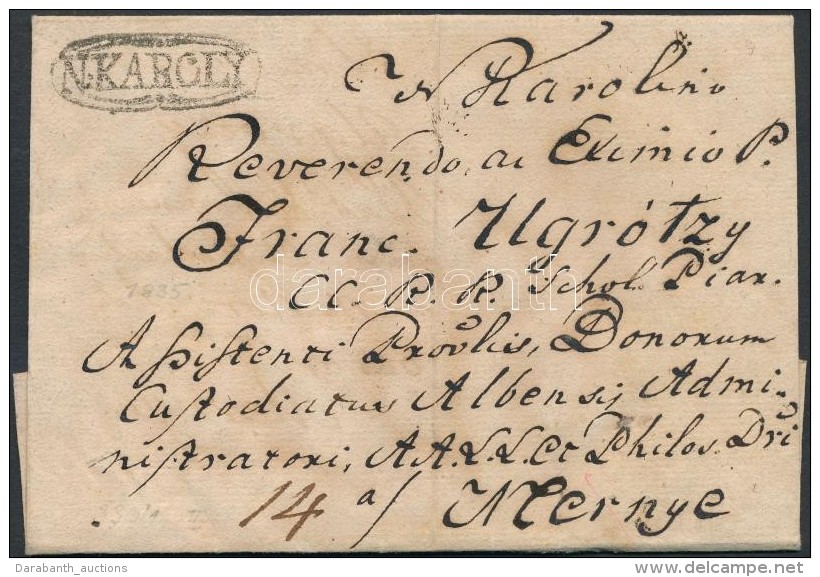 N.KAROLY
N Karolino
Reverendo, ac Eximio P.
Franc. Ugrótzy
CC. R. R. Schol. Piar.
darabanth
1835
Assistenti Provlis, Donorum
Custodiatus Albensis Admi-
nistratori, AA.L.L. et Philos. Dri
14 a/ Mernye
Darabanth_auctions
www.delcampe.net